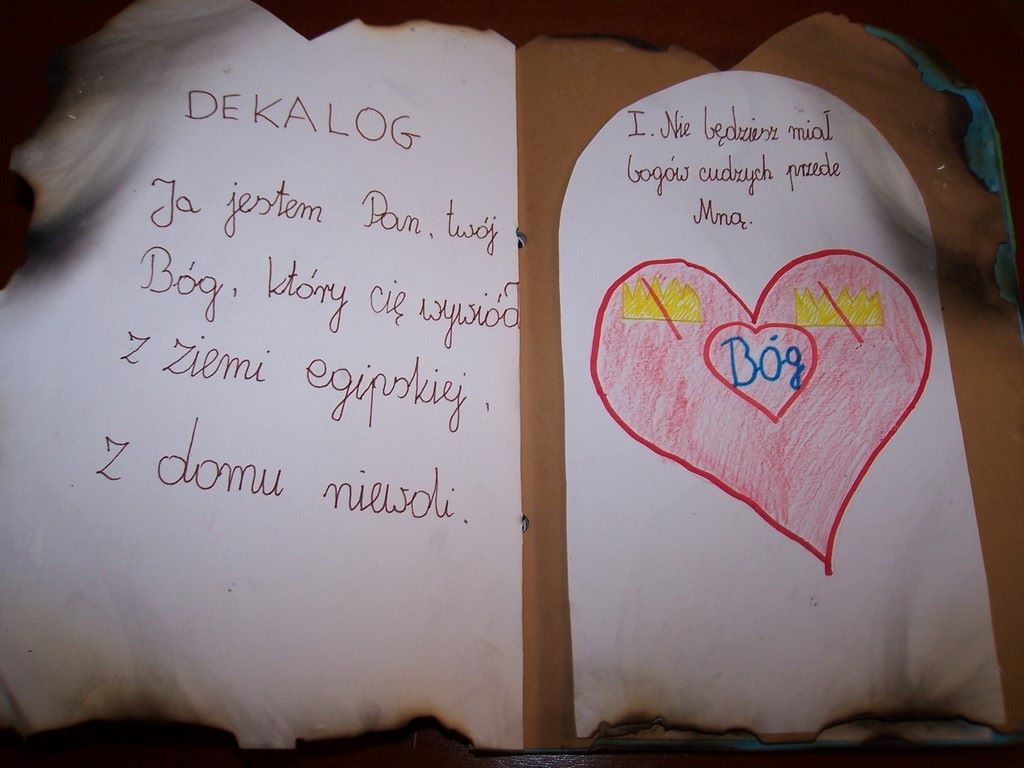 DEKALOG
Ja jestem Pan, twój
Bóg, który cię wywiódł
z ziemi egipskiej,
z domu niewoli.
I. Nie będziesz miał
bogów cudzych przede
Mną.
Bóg